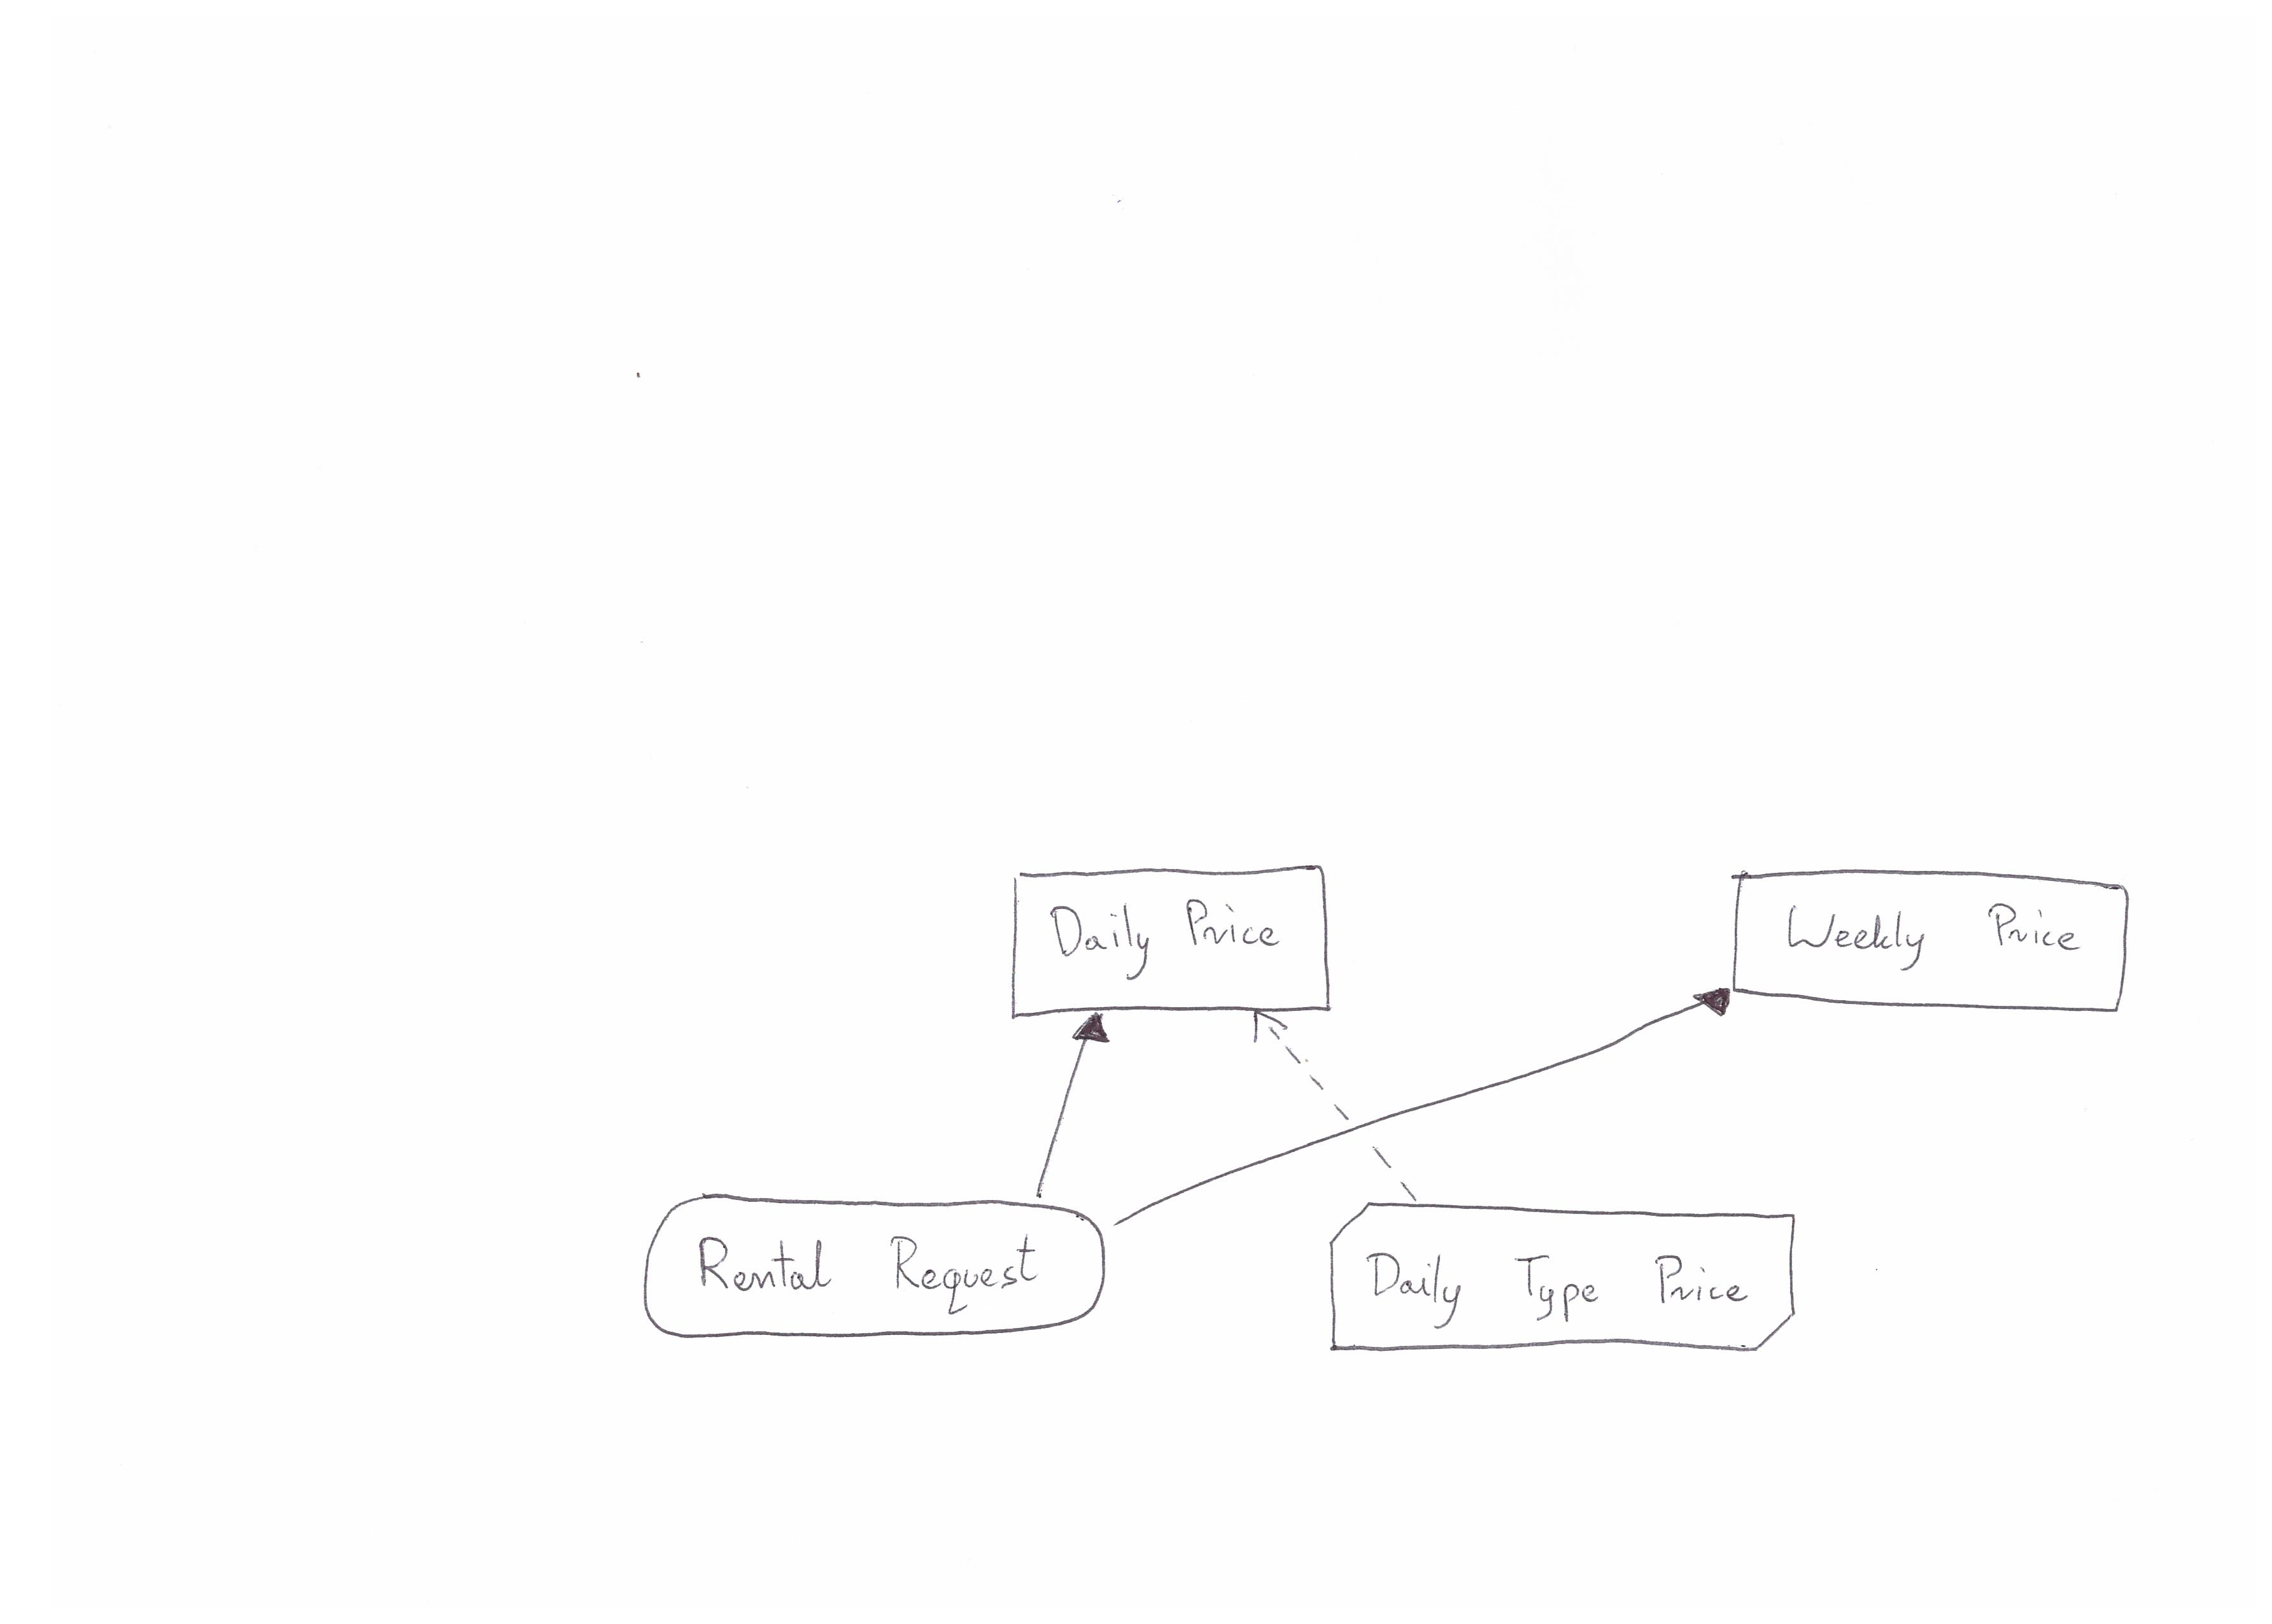 Daily Price
Weekly Price
Rental Request
Daily Type Price